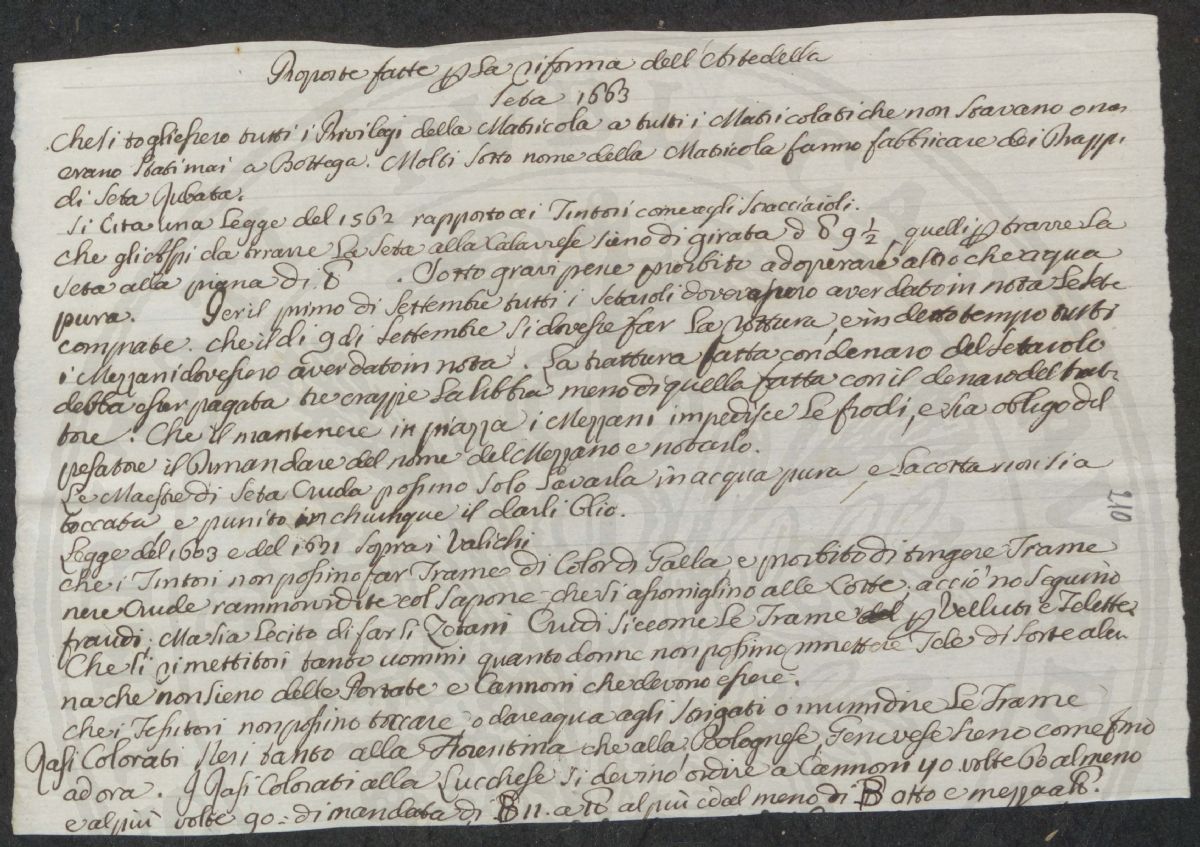 Proposte fatte p La riforma dell'Arte della
Seta 1663
Che si togliessero tutti i Privilegi della Matricola a tutti i Matricolati che non stavano o non
erano stati mai a Bottega. Molti sotto nome della Matricola fanno fabbricare dei Drappi
di Seta Rubata.
Si Cita una Legge del 1562 rapporto ai Tintori come agli Stracciaioli.
che gli Aspi da trarre La Seta alla Calavrese sieno di girata 9 ½, quelli p trarre La
Seta alla di Sotto gravi pene proibito adoperare altro che acqua
pura. Per il primo di Settembre tutti i Setaioli dovessero aver dato in nota Le Sete
comprate. che il di 9 di Settembre si dovesse far La rottura, e in detto tempo tutti
i Mezzani dovessero aver dato in nota. La trattura fatta con denaro del Setaiolo
debba esser pagata tre crazzie La libbra meno di quella fatta con il denaro del trat-
tore. Che il mantenere in piazza i Mezzani impedisce Le frodi, e sia obligo del
pesatore il dimandare del nome del Mezzano e notarlo.
Le Maestre di Seta Cruda possino solo Lavarla in acqua pura e La cotta non sia
toccata, e punito in chiunque il darli Olio.
Legge del 1603 e del 1631 sopra i Valichi
che i Tintori non possino far Trame di Color di Galla e proibito di tingere Trame
nere Crude rammorvidite col Sapone che si assomiglino alle Cotte, acciò no seguino
fraudi; Ma sia Lecito di farsi Zetani Crudi siccome Le Trame p Velluti e Telette
Che Li rimettitori tanto uomini quanto donne non possino rimettere Tele di sorte alcu
na che non sieno delle Portate e Cannoni che devono essere.
che i Tessitori non possino toccare o dare acqua agli Strigati o inumidire Le Trame
Rasi Colorati Neri tanto alla Fiorentina che alla Bolognese, Genovese sieno come fino
ad ora. I Rasi Colorati alla Lucchese si devino ordire a Cannoni 40 volte 80 almeno
e al più volte 90: di mandata di 11. a al più ed al meno di otto e mezza
210